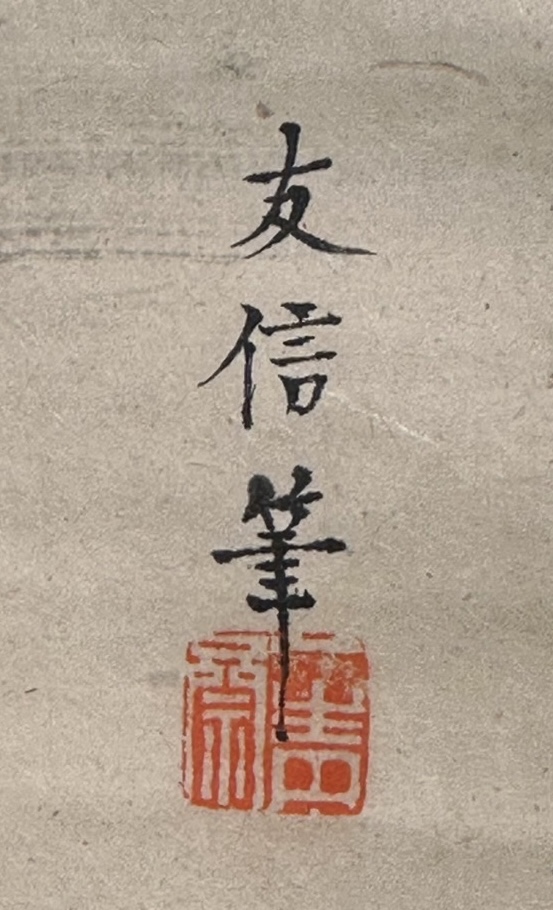 友信筆